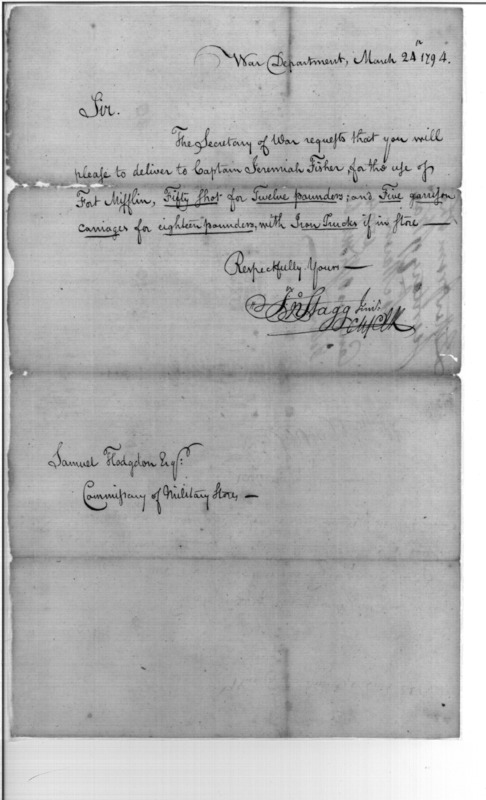 War Department, March 24th 1794.
Sir.
The Secretary of War requests that you will
please to deliver to Captain Jeremiah Fisher, for the use of
Fort Mifflin, Fifty Shot for Twelve pounders; and Five garrison
carriages for eighteen pounders, with Iron Trucks if in Store —
Respectfully Yours —
Jno Stagg Junr
Ch Clk
Samuel Hodgdon Esqr
Commissary of Military Stores —